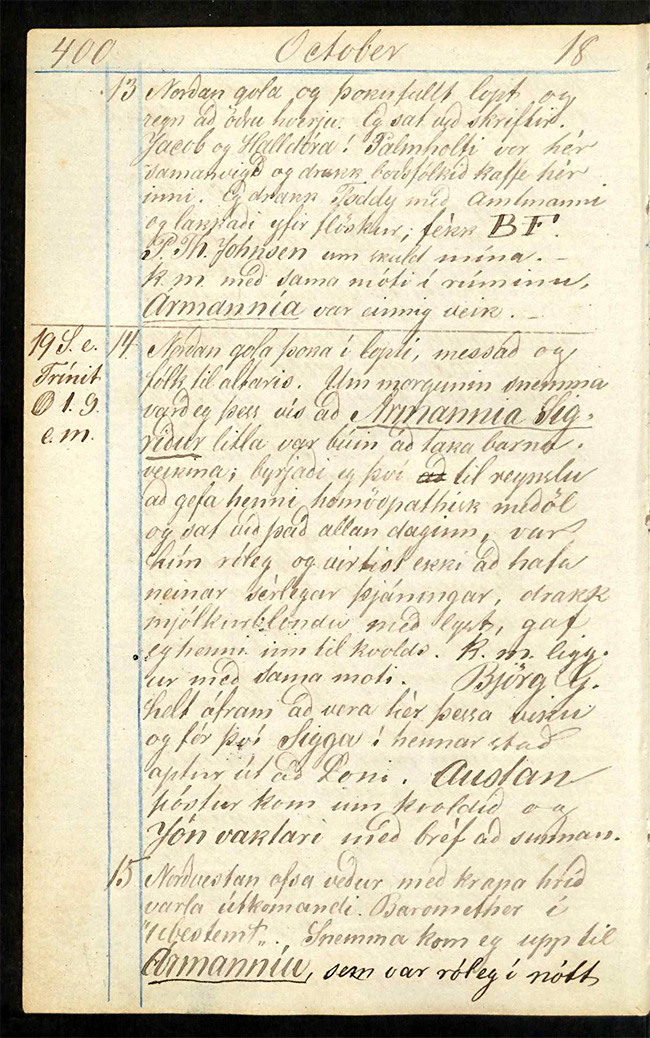 400 October 18
13 Norðan gola og þokufullt lopt og
regn að öðru hverju. Eg sat við skriftir.
Jacob og Halldóra í Pálmholti vor hér
samanvígð og drakk boðsfólkið kaffe hér
inni. Eg drakk Toddy með Amtmanni
og lakkaði yfir flöskur; fékk BF.
P. Th. Johnsen um skuld mína. –
K. m. með sama móti í rúminu,
Armannia var einnig veik. –
19 S. e. 14 Norðan gola þoka í lopti, messað og
Trínit fólk til altaris. Um morgunin snemma
1. 9. varð eg þess vís að Armannia Sig-
e.m. ríður litla var búin að taka barna-
veikina; byrjaði eg því að til reynslu
að gefa henni homöopathisk meðöl
og sat við það allan daginn, var
hún róleg og virtist ekki að hafa
neinar sérlegar þjáningar, drakk
mjólkurblöndu með lyst, gaf
eg henni inn til kvolds. K. m. ligg-
ur með sama moti. Björg G.
helt áfram að vera hér þessa viku
og fór því Sigga í hennar stað
aptur út að Loni. Austan
póstur kom um kvoldið og
Jón vaktari með bréf að sunnan.
15 Norðvestan ofsa veður með krapa hríð
varla útkomandi. Baromether í
"ubestemt". Snemma kom eg upp til
Armanníu, sem var róleg í nótt